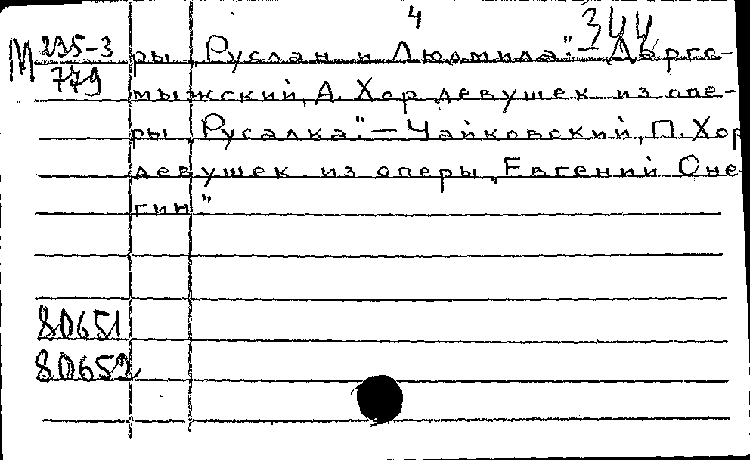 4
344
М 235-3
779
ры „Руслан и Людмила." – Дарго-
мыжский, А. Хор девушек из опе-
ры „Русалка." – Чайковский, П. Хор
девушек из оперы „Евгений Оне
гин."
80651
80652